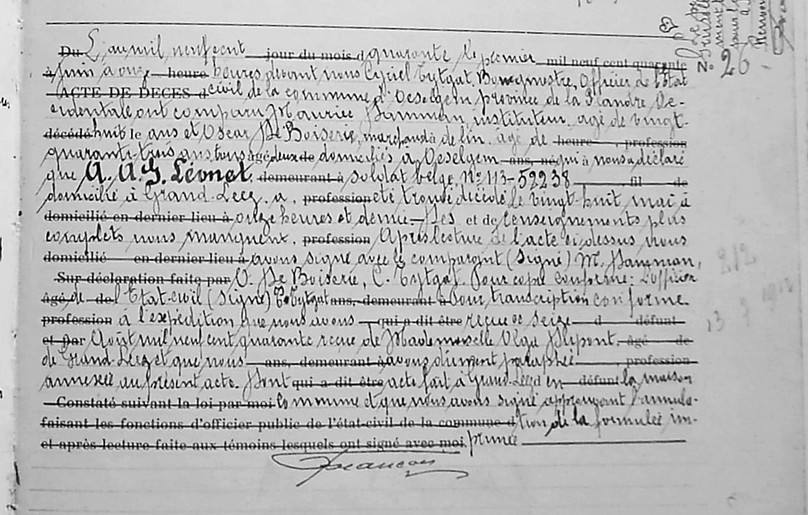 Du L'an mil neuf cent jour du mois d quarante le premier mil neuf cent quarante
à juin à onze heure heures devant nous Cyriel Tytgat, Bourgmestre, Officier de l'Etat
ACTE DE DECES d civil de la commune d'Oeselgem province de la Flandre Oc-
cidentale ont comparu Maurice Samman, instituteur, âgé de vingt-
décédé huit le ans et Oscar De Boiserie, marchand de lin, âgé de heure , profession
quarante-trois ans, tous âgé deux de domiciliés à Oeselgem ans, né qui à nous a déclaré
que A. A. G. Léonet demeurant à soldat belge, N° 113-52238 , fil de
domicilié à Grand-Leez, a, profession été trouvé décédé le vingt-huit mai à
domicilié en dernier lieu à onze heures et demie. Les et de renseignements plus
complets nous manquent. profession Après lecture de l'acte ci-dessus nous
domicilié en dernier lieu à avons signé avec le comparant (Signé) M. Samman,
Sur déclaration faite par O. De Boiserie, C. Tytgat. Pour copie conforme: L'officier
âgé de de l'Etat-civil (Signé) C. Tytgat ans, demeurant à Pour transcription conforme
profession à l'expédition que nous avons , qui a dit être reçue ce seize d défunt
et par Août mil neuf cent quarante reçue de Mademoiselle Olga âgé de
de Grand-Leez et que nous ans, demeurant à avons dûment paraphée profession
annexée au présent acte. Dont qui a dit être acte fait à Grand-Leez en défunt la maison
Constaté suivant la loi par moi commune et que nous avons signé approuvant l'annula-
faisant les fonctions d'officier public de l'état-civil de la commune d tion de la formule im-
et après lecture faite aux témoins lesquels ont signé avec moi. primée
N° 26